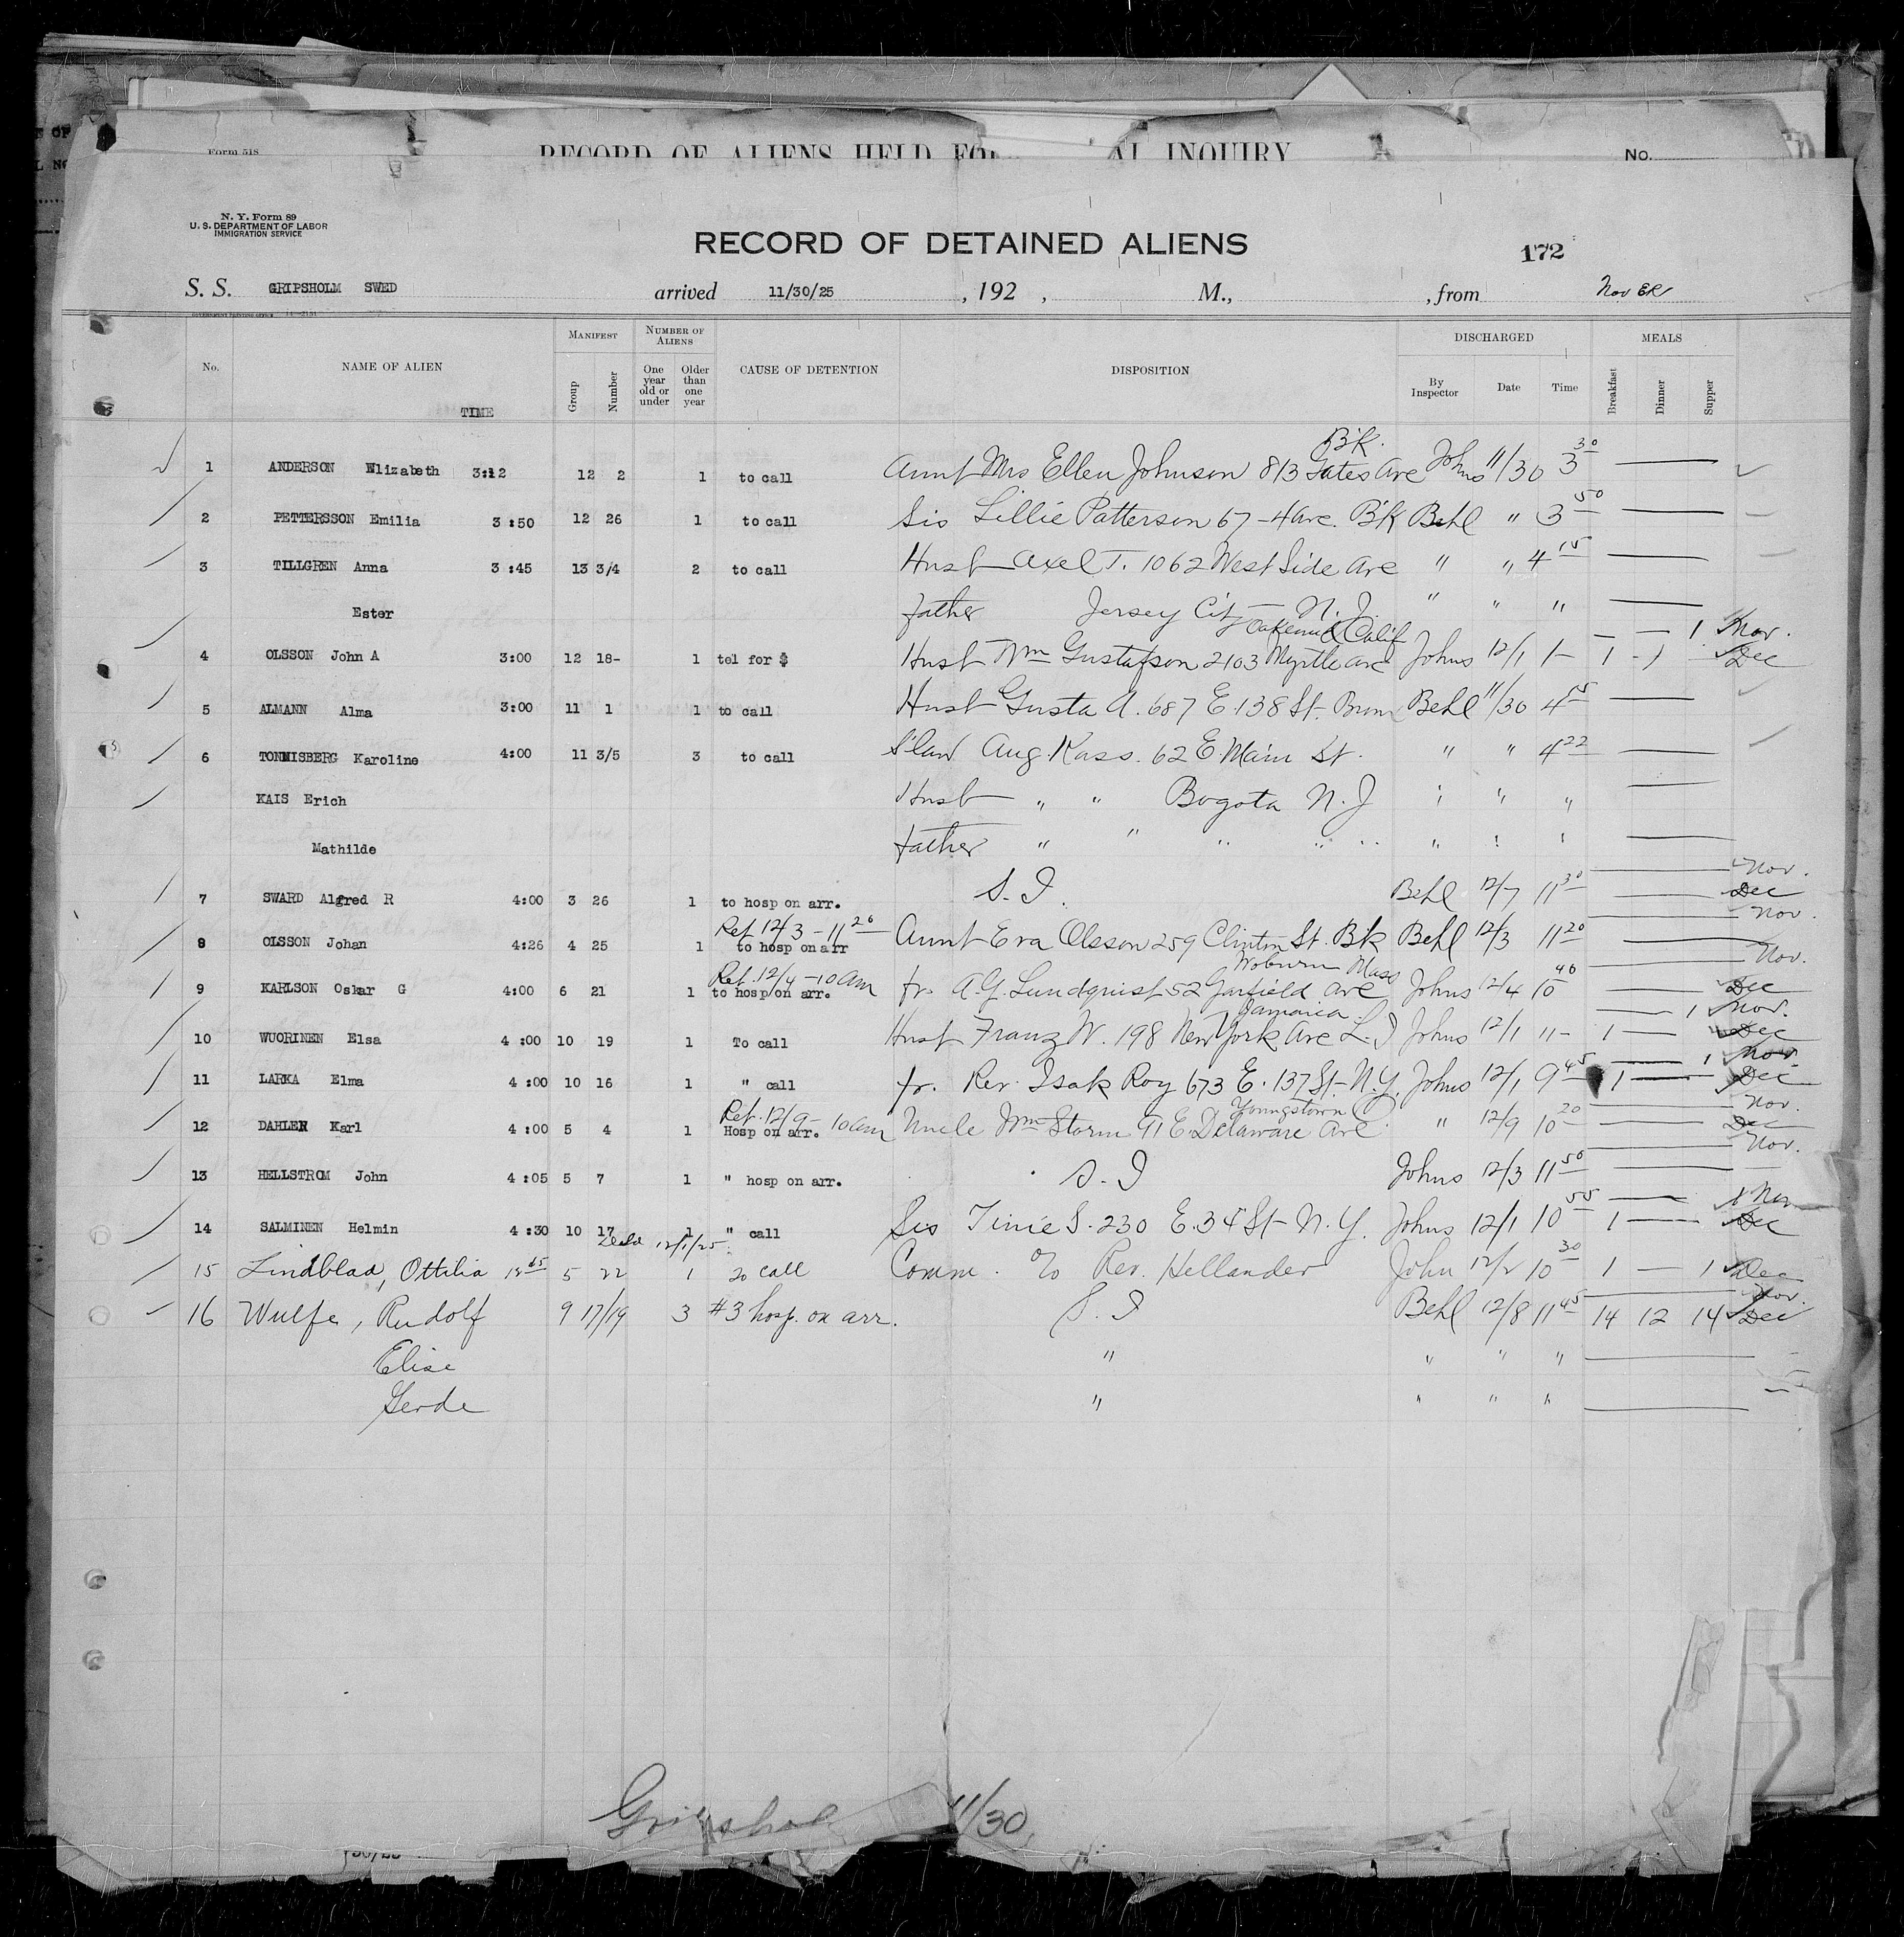 Form 518 RECORD OF ALIENS HELD FOR AL INQUIRY No.
N. Y. Form 89
U. S. DEPARTMENT OF LABOR
IMMIGRATION SERVICE
RECORD OF DETAINED ALIENS 172
S. S. GRIPSHOLM SWED arrived 11/30/25, 192 , M., , from
No. NAME OF ALIEN TIME MANIFEST Group Number NUMBER OF ALIENS One year old or under Older than one year CAUSE OF DETENTION DISPOSITION DISCHARGED By Inspector Date Time MEALS Breakfast Dinner Supper
Bk.
1 ANDERSON Elizabeth 3:12 12 2 1 to call Aunt Mrs Ellen Johnson 813 Gates Ave Johns 11/30 3 30
2 PETTERSSON Emilia 3:50 12 26 1 to call Sis Lillie Patterson 67-4 Ave. Bk Behl " 3 50
3 TILLGREN Anna 3:45 13 3/4 2 to call Husb Axel T. 1062 West Side Ave " " 4 15
Ester father Jersey City N.J. " " "
Calif 1 Nov.
4 OLSSON John A 3:00 12 18- 1 tel for $ Husb Wm Gustafson 2103 Myrtle Ave Johns 12/1 1- 1 - 1 Dec
5 ALMANN Alma 3:00 11 1 1 to call Husb Gusta A. 687 E. 138 St. Bronx Behl 11/30 4 15
6 TONMISBERG Karoline 4:00 11 3/5 3 to call S'law Aug. Kass. 62 E Main St. " " 4 22
KAIS Erich Husb " " Bogota N.J " " "
Mathilde father " " " " " " " "
Nov.
7 SWARD Algred R 4:00 3 26 1 to hosp on arr. S.I. Behl 12/7 11 30 Dec
Ret 12/3 - 11 20 Nov.
8 OLSSON Johan 4:26 4 25 1 to hosp on arr Aunt Eva Olsson 259 Clinton St. Bk Behl 12/3 11 20
Ret. 12/4 - 10 am Woburn Mass Nov.
9 KARLSON Oskar G 4:00 6 21 1 to hosp on arr. fr. A.G. Lundquist 52 Garfield Ave Johns 12/4 10 40 Dec
Jamaica 1 Nov.
10 WUORINEN Elsa 4:00 10 19 1 To call Husb Franz W. 198 New York Ave L.I Johns 12/1 11- 1 Dec
1 Nov
11 LARKA Elma 4:00 10 16 1 " call fr. Rev. Isak Roy 673 E. 137 St- N.Y. Johns 12/1 9 45 1 Dec
Ret. 12/9 - 10 am Youngstown O Nov.
12 DAHLER Karl 4:00 5 4 1 Hosp on arr. Uncle Wm Storm 91 E. Delaware Ave " 12/9 10 20 Dec
Nov.
13 HELLSTROM John 4:05 5 7 1 " hosp on arr. S.I Johns 12/3 11 50
1 Nov
14 SALMINEN Helmin 4:30 10 17 1 " call Sis Tinie S. 230 E. 34 St- N.Y. Johns 12/1 10 55 1 Dec
12/1/25
15 Lindblad, Ottilia 12 45 5 22 1 to call Comm. c/o Rev. Hellander John 12/2 10 30 1 — 1 Dec
Nov.
16 Wulfe, Rudolf 9 17/19 3 #3 hosp. on arr. S.I Behl 12/8 11 45 14 12 14 Dec
Elise " " " "
Gerde " " " "
Gripshol 11/30